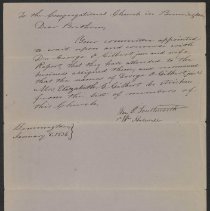 To the Congregational Church in Bennington
Dear Brethren,
Your committee appointed
to wait upon and converse with
Dr. George A. Gilbert, jun. and wife,
Report, that they have attended to the
business assigned them and recommend
that the names of George A. Gilbert jun. &
Mrs. Elizabeth C. Gilbert be stricken
from the list of members of
this Church.
Bennington
January 5, 1838